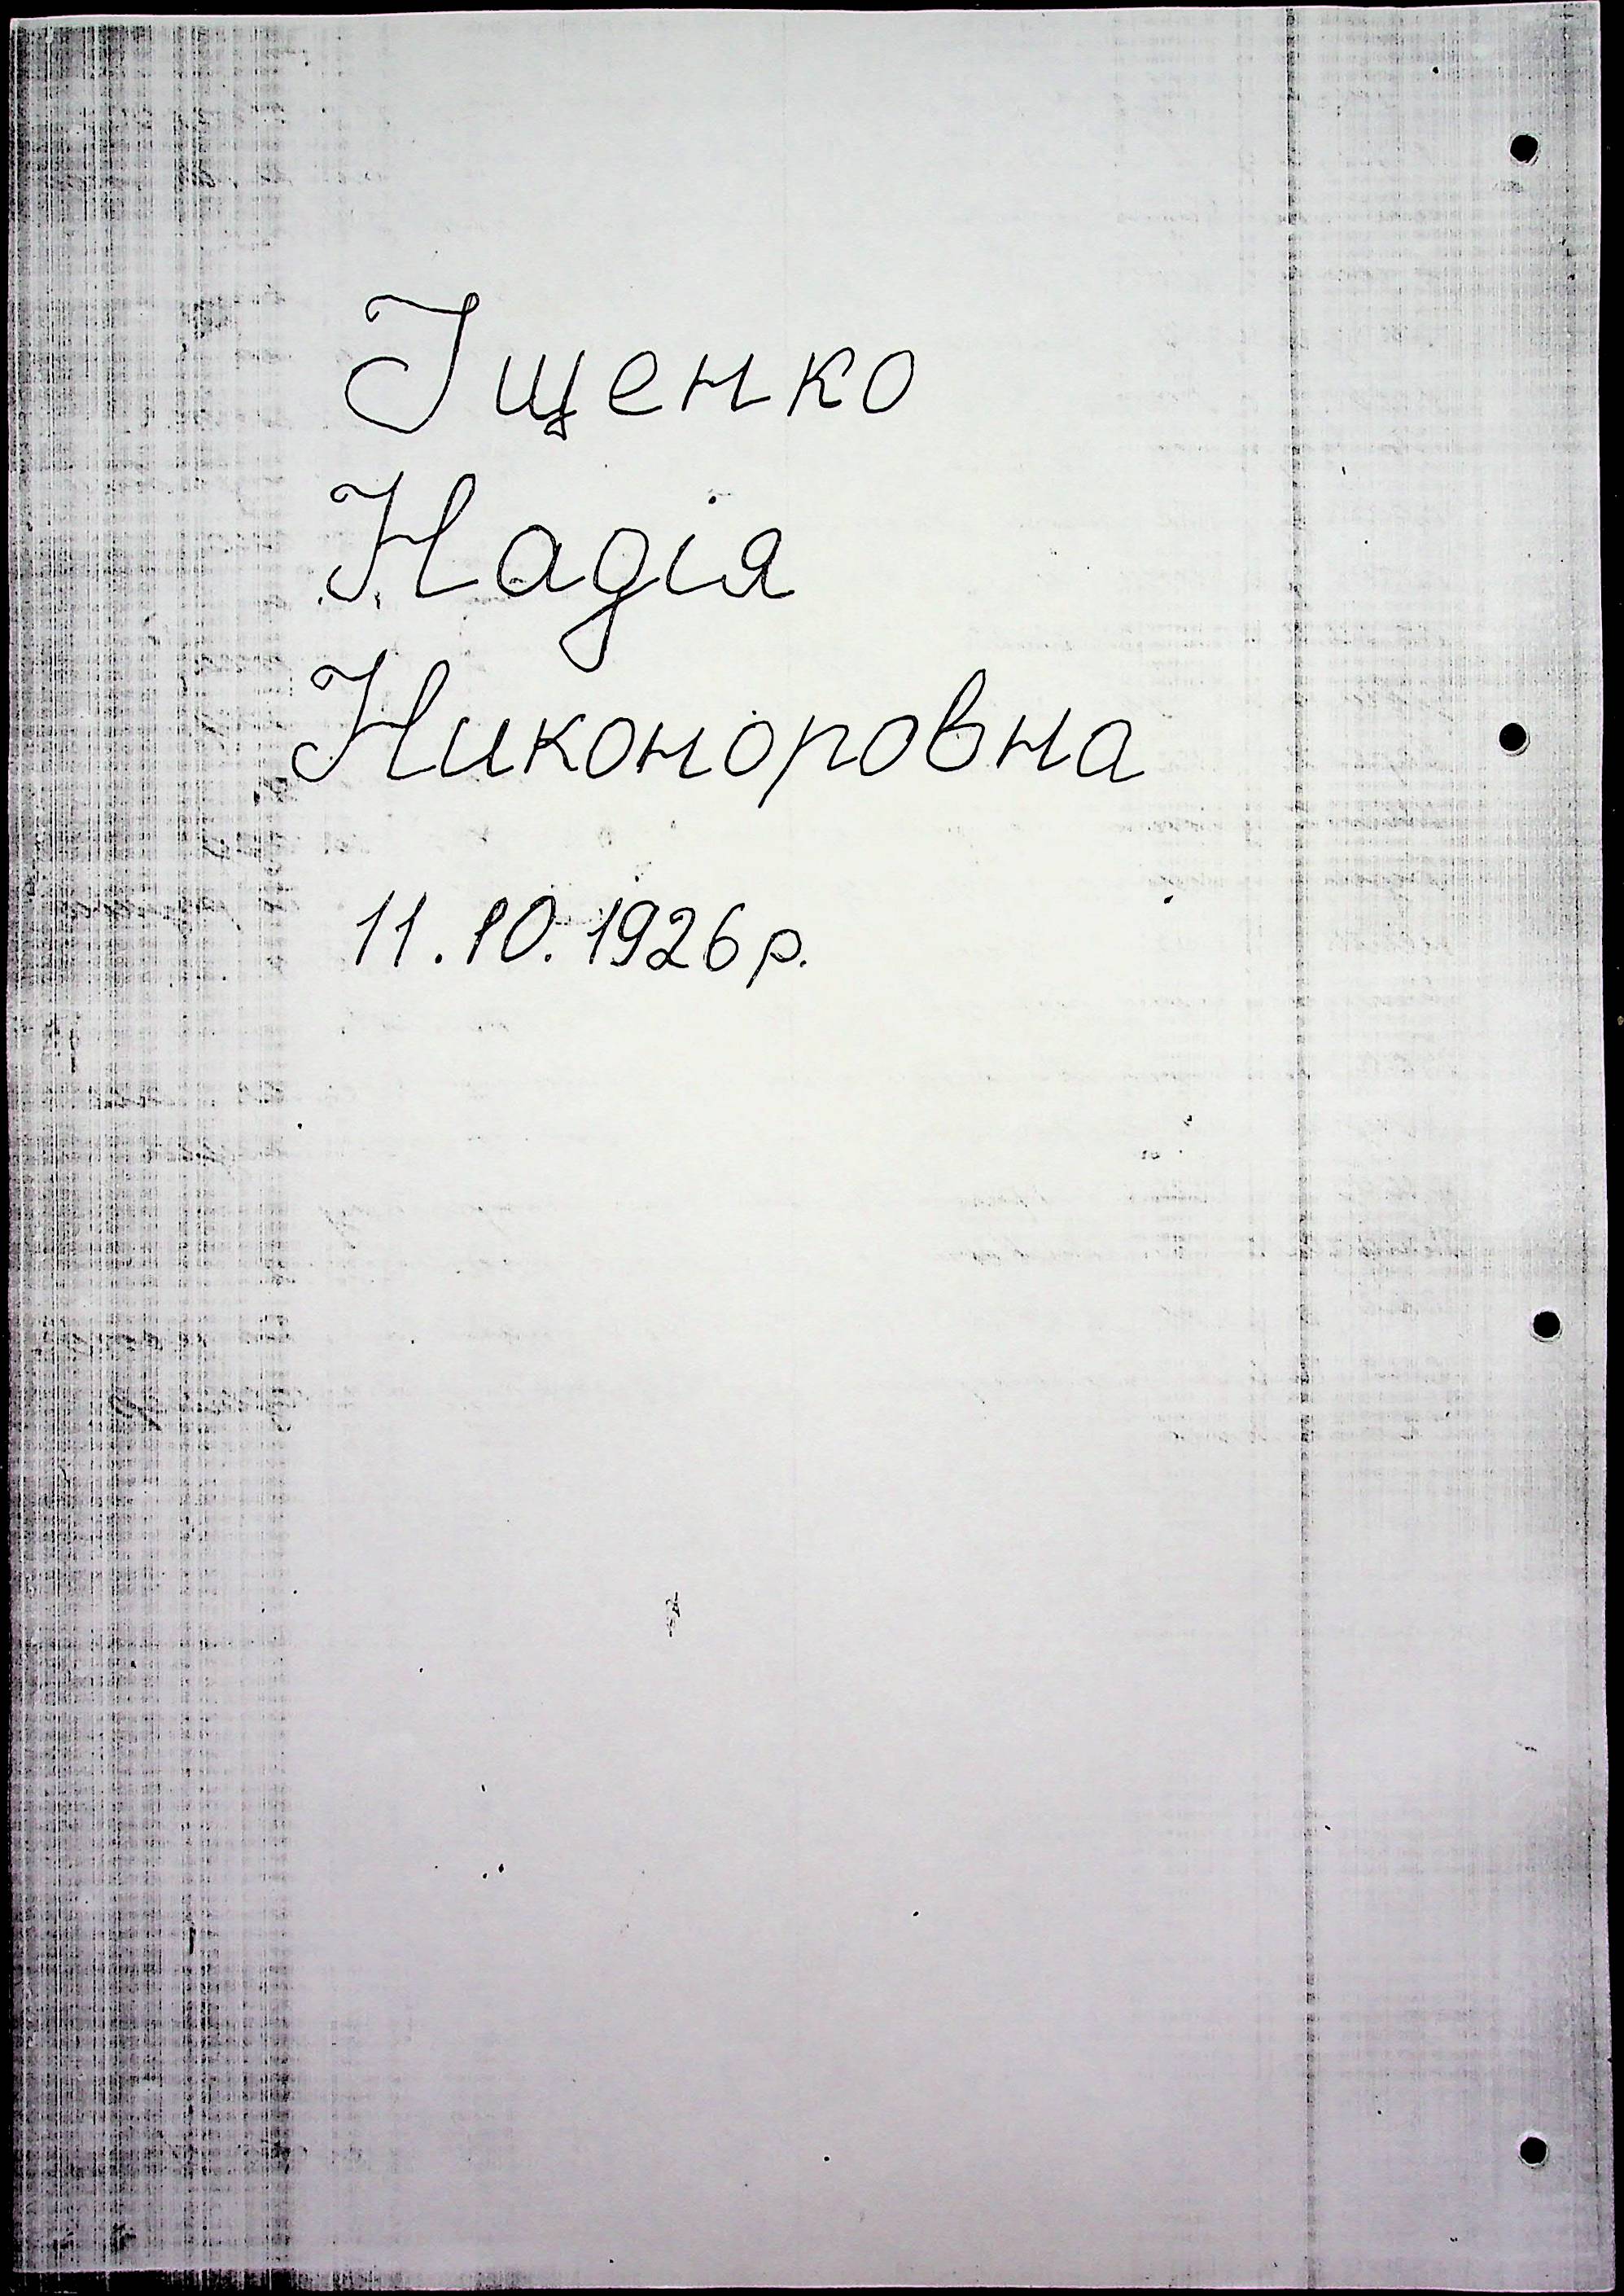 Іщенко
Надія
Никоноровна
11.10.1926 р.